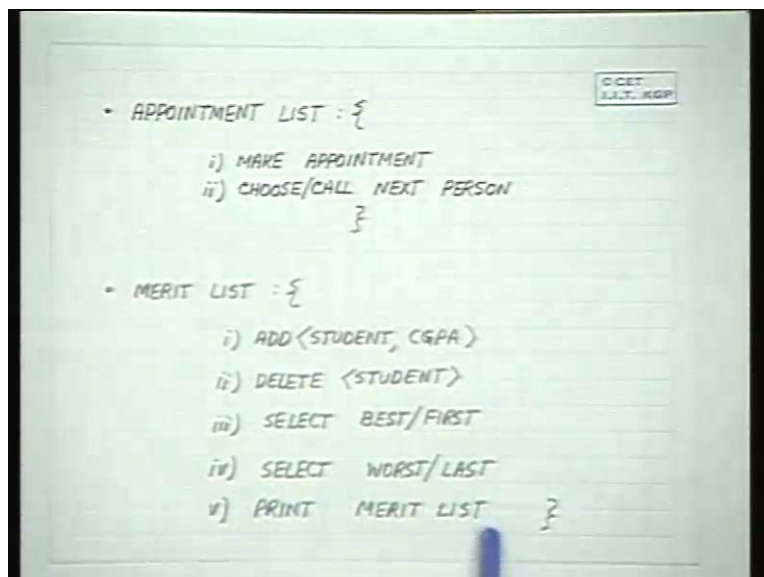 C CET
I.I.T. KGP
- APPOINTMENT LIST : {
i) MAKE APPOINTMENT
ii) CHOOSE/CALL NEXT PERSON
}
- MERIT LIST : {
i) ADD <STUDENT, CGPA>
ii) DELETE <STUDENT>
iii) SELECT BEST/FIRST
iv) SELECT WORST/LAST
v) PRINT MERIT LIST }